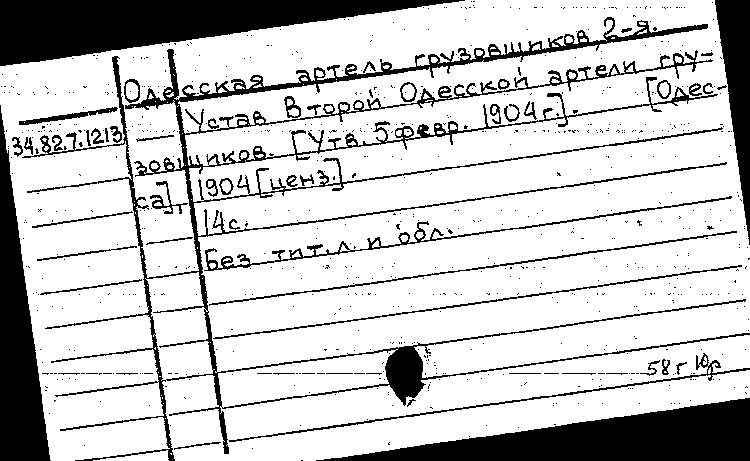 Одесская артель грузовщиков, 2-я.
Устав Второй Одесской артели гру-
34.82.7.1213
зовщиков. [Утв. 5 февр. 1904 г.]. [Одес-
са], 1904 [ценз.].
14 с.
Без тит. л. и обл.
58 г Юр